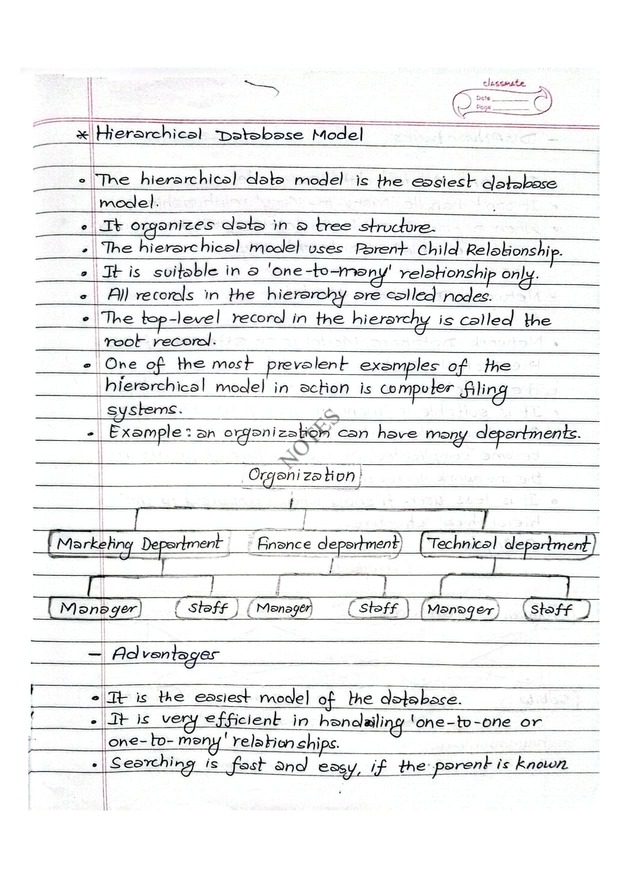 classmate
Date
Page
* Hierarchical Database Model
• The hierarchical data model is the easiest database
model.
• It organizes data in a tree structure.
• The hierarchical model uses Parent Child Relationship.
• It is suitable in a 'one-to-many' relationship only.
• All records in the hierarchy are called nodes.
• The top-level record in the hierarchy is called the
root record.
• One of the most prevalent examples of the
hierarchical model in action is computer filing
systems.
• Example: an organization can have many departments.
NOTES
Organization
Marketing Department Finance department Technical department
Manager Staff Manager Staff Manager Staff
- Advantages
• It is the easiest model of the database.
• It is very efficient in handailing 'one-to-one or
one-to-many' relationships.
• Searching is fast and easy, if the parent is known